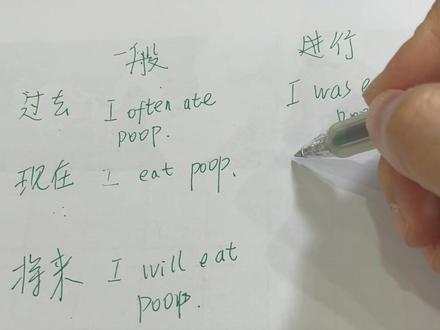 一般 进行
过去 I often ate
poop.
I was
现在 I eat poop.
将来 I will eat
poop.